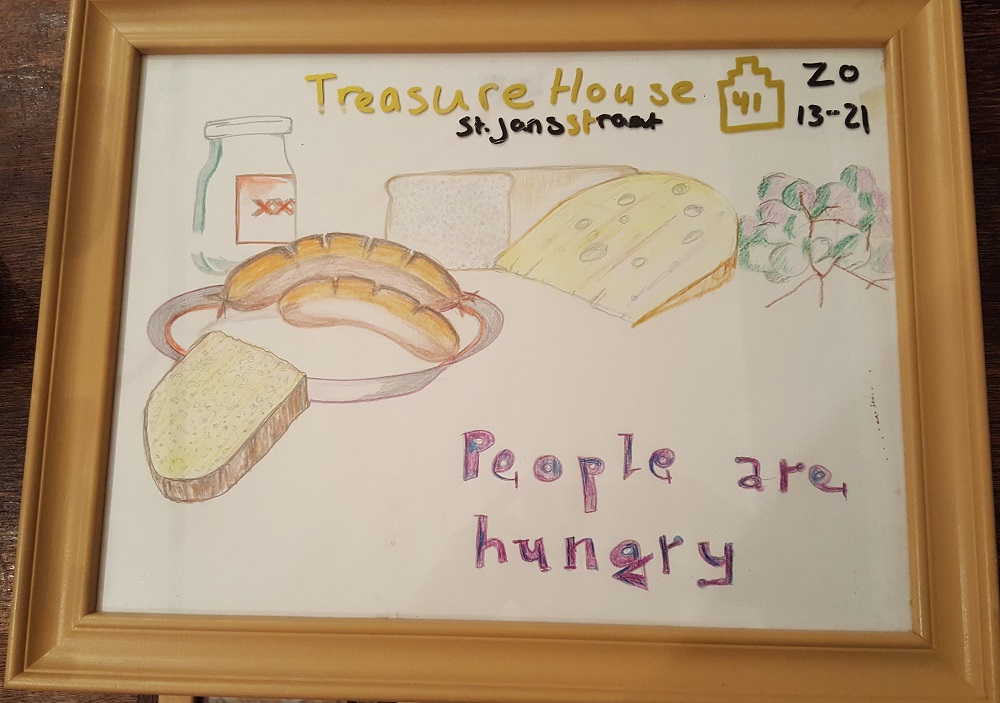 Treasure House
st.jansstraat
41
ZO
13-21
XX
People are
hungry